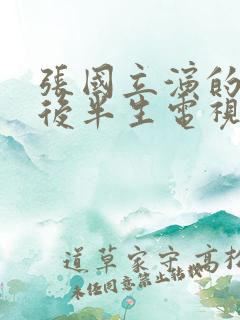 張國立演的
後半生電視
道草家守 高松
未经同意禁止转载